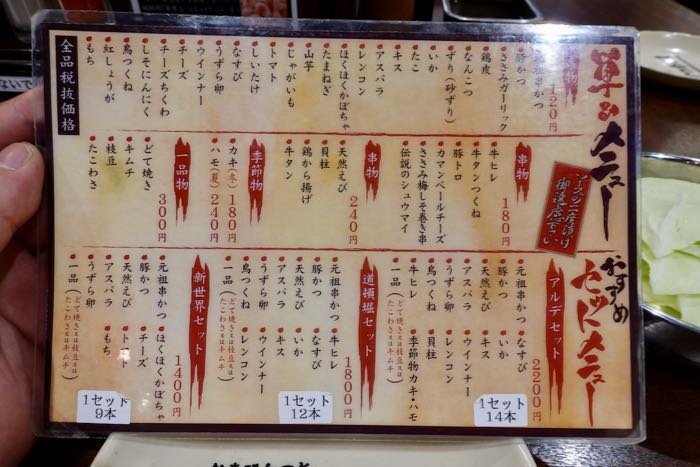 単品メニュー
ソースの二度漬け
御遠慮下さい
おすすめ
セットメニュー
串物
120円
元祖串かつ
豚かつ
ささみガーリック
鶏皮
なんこつ
ずり(砂ずり)
いか
たこ
キス
アスパラ
レンコン
ほくほくかぼちゃ
たまねぎ
山芋
じゃがいも
トマト
しいたけ
なすび
うずら卵
ウインナー
チーズ
チーズちくわ
しそにんにく
鳥つくね
紅しょうが
もち
全品税抜価格
串物
180円
牛ヒレ
牛タンつくね
豚トロ
カマンベールチーズ
ささみ梅しそ巻き串
伝説のシュウマイ
串物
240円
天然えび
貝柱
鶏から揚げ
牛タン
季節物
カキ(冬)180円
ハモ(夏)240円
一品物
300円
どて焼き
キムチ
枝豆
たこわさ
アルデセット
2200円
元祖串かつ
なすび
豚かつ
いか
天然えび
キス
アスパラ
ウインナー
うずら卵
レンコン
鳥つくね
貝柱
牛ヒレ
季節物カキ・ハモ
一品(どて焼き又は枝豆又は
たこわさ又はキムチ)
1セット
14本
道頓堀セット
1800円
元祖串かつ
牛ヒレ
豚かつ
なすび
天然えび
いか
アスパラ
キス
うずら卵
ウインナー
鳥つくね
レンコン
一品(どて焼き又は枝豆又は
たこわさ又はキムチ)
1セット
12本
新世界セット
1400円
元祖串かつ
ほくほくかぼちゃ
豚かつ
チーズ
天然えび
トマト
アスパラ
もち
うずら卵
一品(どて焼き又は枝豆又は
たこわさ又はキムチ)
1セット
9本